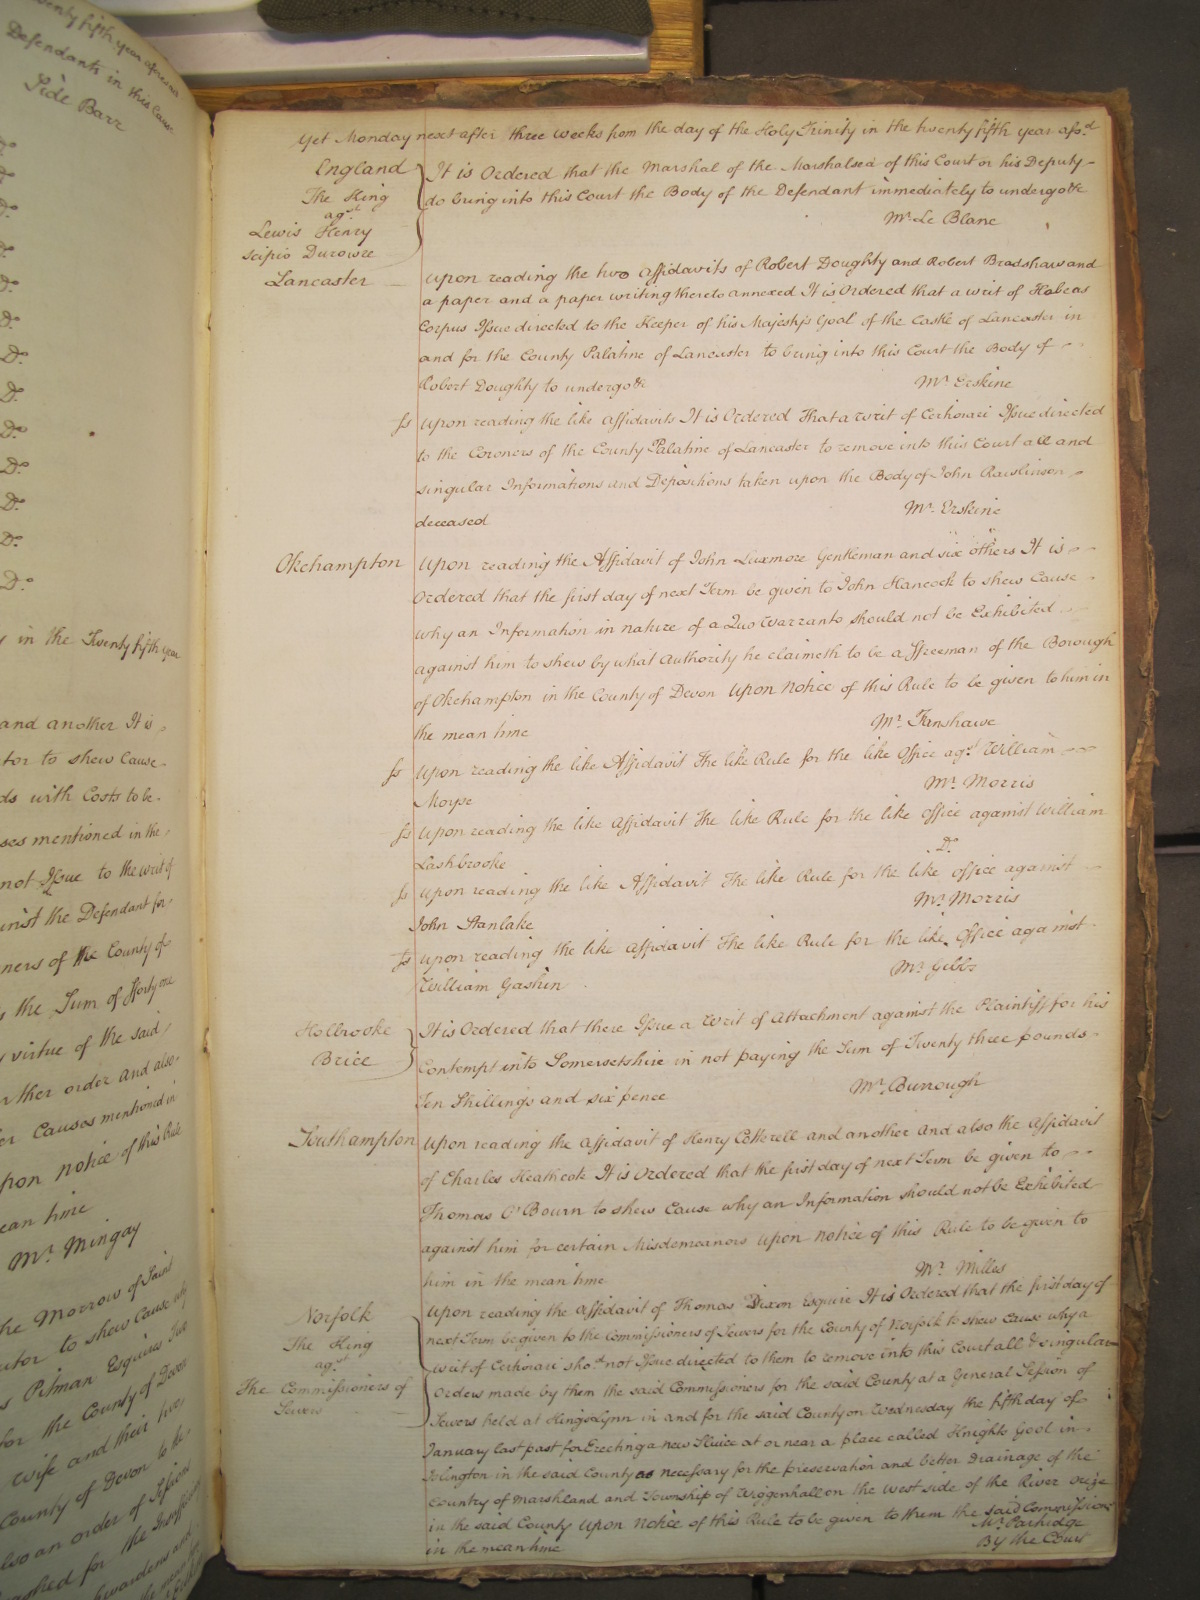 twenty fifth year aforesaid
Defendants in this Cause
Side Barr
Do
Do
Do
Do
Do
Do
Do
Do
in the Twenty fifth year
and another It is
tor to shew Cause
ds with Costs to be
ses mentioned in the
not Issue to the writ of
inst the Defendant for
ners of the County of
the Sum of fforty one
virtue of the said
ther order and also
er Causes mentioned in
pon notice of this Rule
ean time
Mr. Mingay
he Morrow of Saint
utor to shew Cause why
s Pitman Esquires Two
for the County of Devon
wife and their five
County of Devon to the
also an order of Sessions
for the Insufficiency
Yet Monday next after three weeks from the day of the Holy Trinity in the twenty fifth year afsd
England
The King
agst
Lewis Henry
Scipio Durowre
It is Ordered that the Marshal of the Marshalsea of this Court or his Deputy
do bring into this Court the Body of the Defendant immediately to undergo &c
Mr Le Blanc
Lancaster
Upon reading the two Affidavits of Robert Doughty and Robert Bradshaw and
a paper and a paper writing thereto annexed It is Ordered that a writ of Habeas
Corpus Issue directed to the Keeper of his Majestys Goal of the Castle of Lancaster in
and for the County Palatine of Lancaster to bring into this Court the Body of
Robert Doughty to undergo &c
Mr Erskine
Ss Upon reading the like Affidavits It is Ordered That a Writ of Certiorari Issue directed
to the Coroners of the County Palatine of Lancaster to remove into this Court all and
singular Informations and Depositions taken upon the Body of John Rawlinson
deceased
Mr. Erskine
Okehampton
Upon reading the Affidavit of John Luxmore Gentleman and six others It is
Ordered that the first day of next Term be given to John Hancock to shew Cause
why an Information in nature of a Quo Warranto should not be Exhibited
against him to shew by what Authority he claimeth to be a ffreeman of the Borough
of Okehampton in the County of Devon Upon Notice of this Rule to be given to him in
the mean time
Mr. Fanshawe
Ss Upon reading the like Affidavit The like Rule for the like Office agst William
Moyse
Mr. Morris
Ss Upon reading the like Affidavit The like Rule for the like Office against William
Lashbrooke
Do
Ss Upon reading the like Affidavit The like Rule for the like Office against
John Stanlake
Mr. Morris
Ss Upon reading the like Affidavit The like Rule for the like Office against
William Gashin
Mr. Gibbs
Holbrooke
Brice
It is Ordered that there Issue a Writ of Attachment against the Plaintiff for his
Contempt into Somersetshire in not paying the Sum of Twenty three pounds
Ten Shillings and six pence
Mr. Burrough
Southampton
Upon reading the Affidavit of Henry Cotterell and another and also the Affidavit
of Charles Heathcote It is Ordered that the first day of next Term be given to
Thomas O'Bourn to shew Cause why an Information should not be Exhibited
against him for certain Misdemeanors Upon notice of this Rule to be given to
him in the mean time
Mr. Milles
Norfolk
The King
agst
The Commissioners of
Sewers
Upon reading the Affidavit of Thomas Dixon Esquire It is Ordered that the first day of
next Term be given to the Commissioners of Sewers for the County of Norfolk to shew Cause why a
writ of Certiorari shod not Issue directed to them to remove into this Court all & singular
Orders made by them the said Commissioners for the said County at a General Session of
Sewers held at Kings Lynn in and for the said County on Wednesday the fifth day of
January last past for Erecting a new Sluice at or near a place called Knights Gool in
Islington in the said County as necessary for the preservation and better Drainage of the
Country of Marshland and Township of Wiggenhall on the West side of the River Ouze
in the said County Upon Notice of this Rule to be given to them the said Commissioners
in the mean time
Mr. Partridge
By the Court